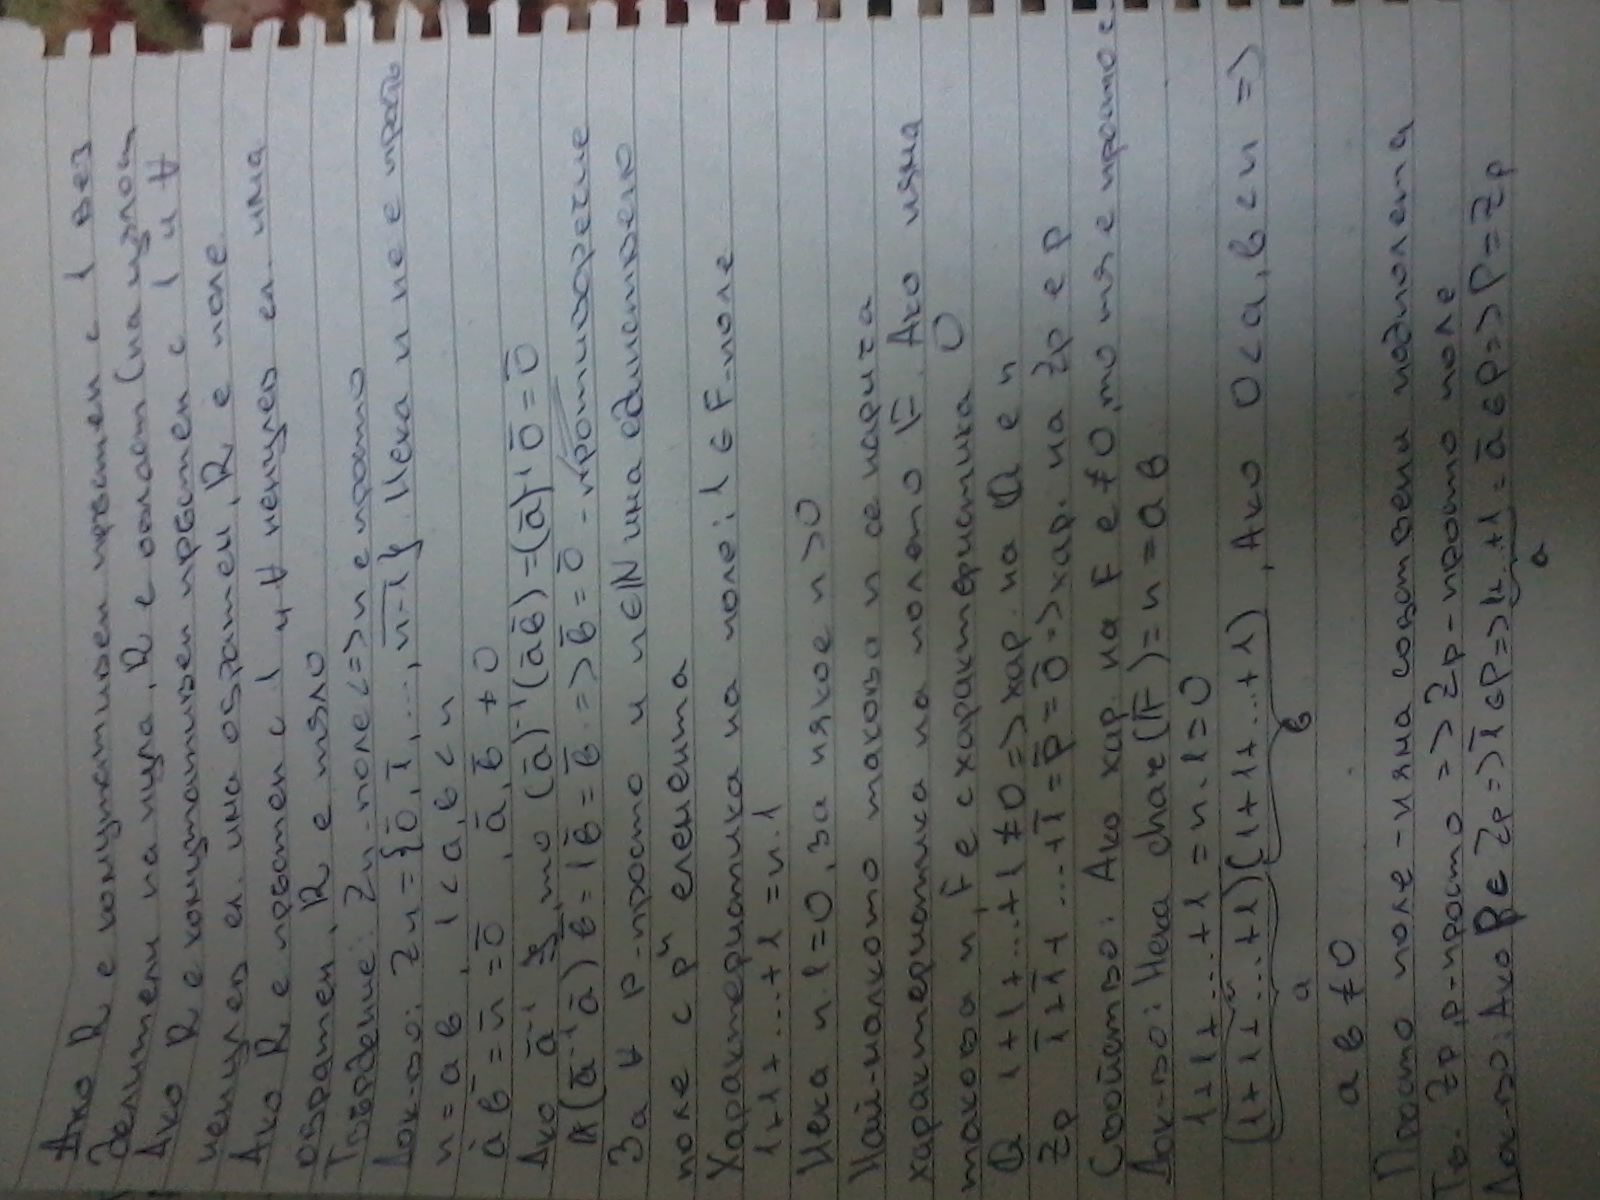 Ако R е комутативен пръстен с 1 без
делители на нула, R е област (на цялост
Ако R е комутативен пръстен с 1 и ∀
ненулев ел. има обратен, R е поле.
Ако R е пръстен с 1 и ∀ ненулев ел. има
обратен, R е тяло
Твърдение: Zn-поле <=> n е просто
Док-во: Zn = {0̅, 1̅, ..., n-1̅}. Нека n не е просто
n = ab, 1 < a, b < n
a̅ b̅ = n̅ = 0̅, a̅, b̅ ≠ 0
Ако a̅⁻¹ ∃, то (a̅)⁻¹(a̅b̅) = (a̅)⁻¹0̅ = 0̅
(a̅⁻¹a̅)b̅ = 1b̅ = b̅ => b̅ = 0̅ - противоречие
За ∀ p-просто и n∈ℕ има единствено
поле с pⁿ елемента
Характеристика на поле: 1 ∈ F-поле
1+1+...+1 = n.1
Нека n.1=0, за някое n>0
Най-малкото такова n се нарича
характеристика на полето F. Ако няма
такова n, F е с характеристика 0
Q 1+1+...+1 ≠ 0 => хар. на Q е n
Zp 1̅+1̅+...+1̅ = p̅ = 0̅ => хар. на Zp е p
Свойство: Ако хар. на F е ≠ 0, то тя е просто е.
Док-во: Нека char(F) = n = ab
1+1+...+1 = n.1 = 0
(1+1+...+1)(1+1+...+1), Ако 0<a,b<n =>
a b
ab ≠ 0
Просто поле - няма собствени подполета
Тв. Zp, p-просто => Zp - просто поле
Док-во: Ако P∈Zp => 1̅∈P => 1+...+1 = a̅ ∈ P => P = Zp
a